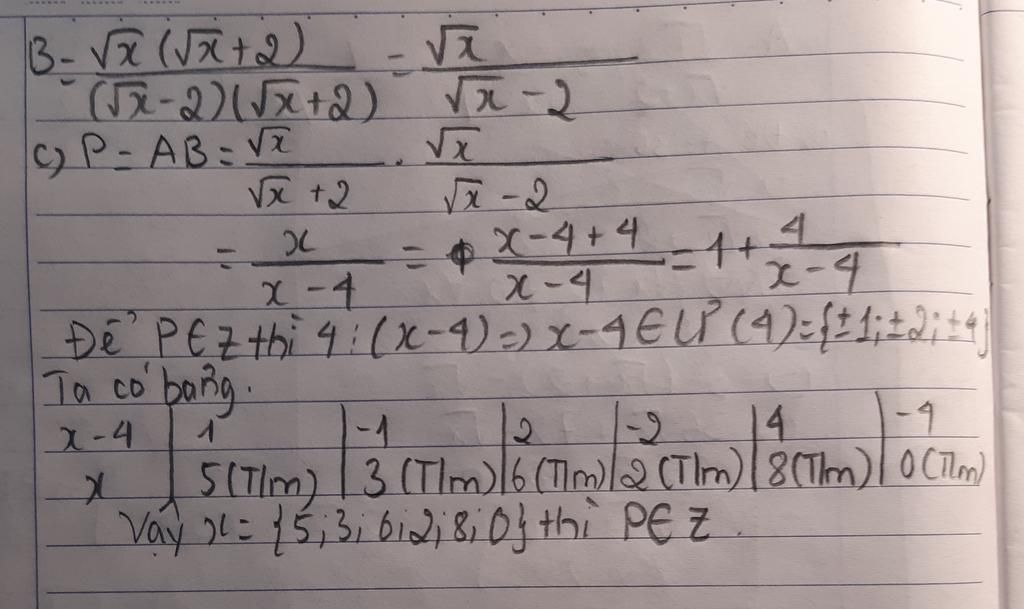 B = √x (√x + 2) / (√x - 2)(√x + 2) = √x / √x - 2
c) P = AB = √x / √x + 2 . √x / √x - 2
= x / x - 4 = x - 4 + 4 / x - 4 = 1 + 4 / x - 4
Để P ∈ Z thì 4 ⋮ (x - 4) => x - 4 ∈ Ư (4) = {±1; ±2; ±4}
Ta có bảng.
x - 4 | 1 | -1 | 2 | -2 | 4 | -4
x | 5 (T/m) | 3 (T/m) | 6 (T/m) | 2 (T/m) | 8 (T/m) | 0 (T/m)
Vậy x = {5; 3; 6; 2; 8; 0} thì P ∈ Z.